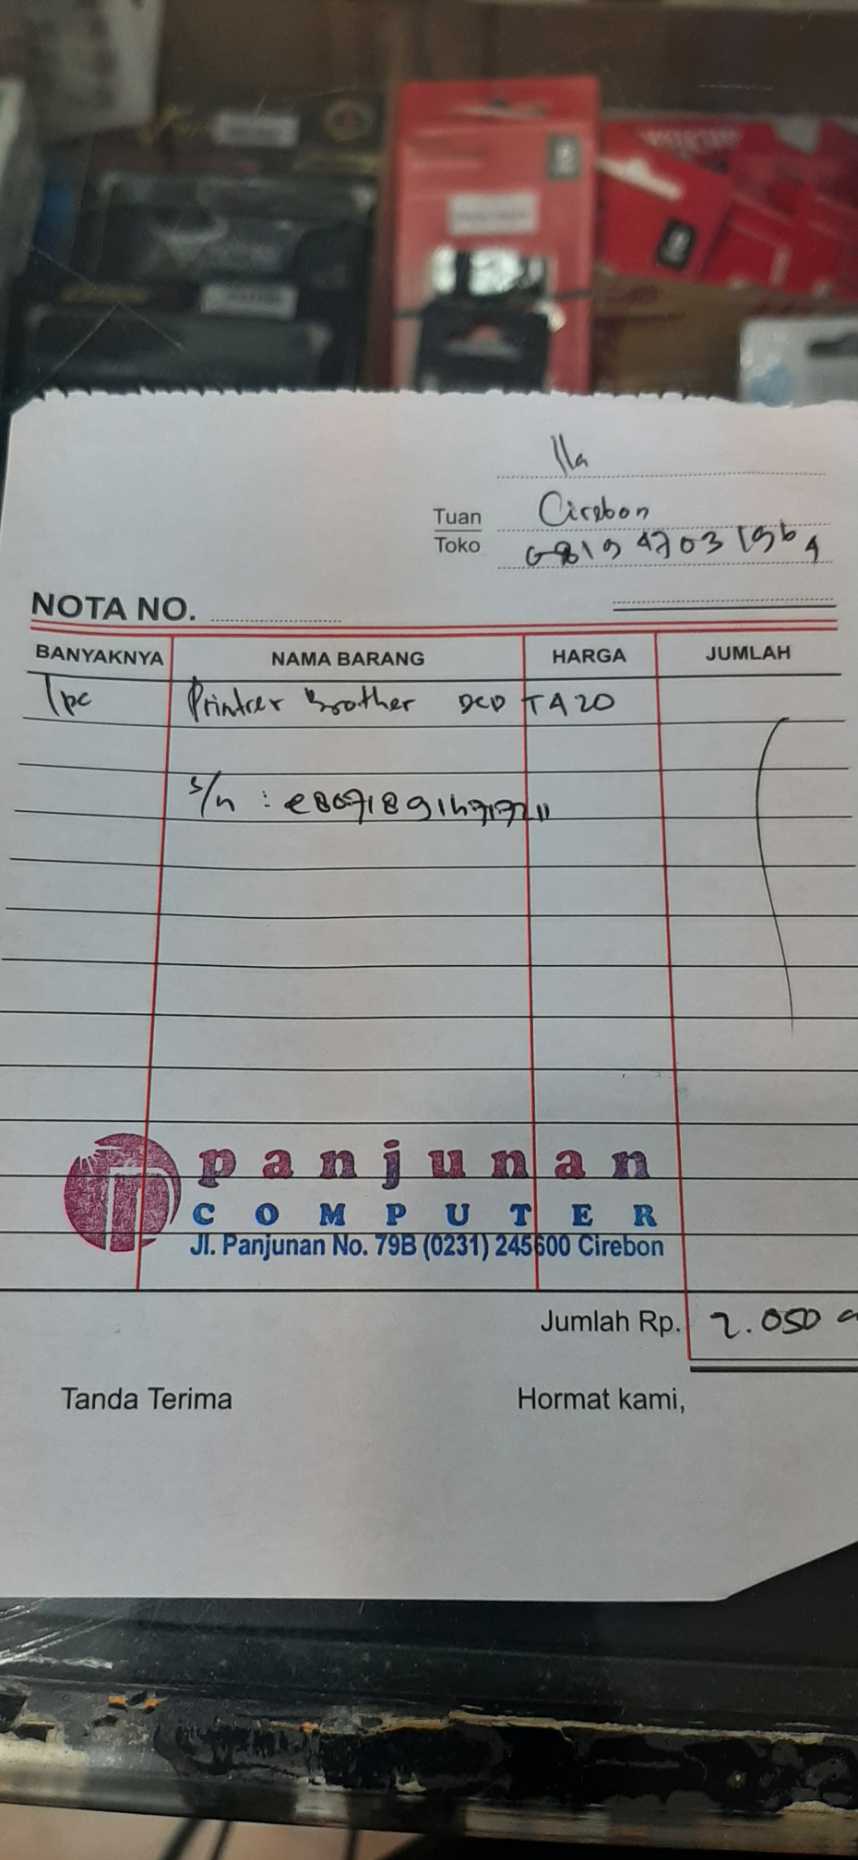 Ila
Tuan Cirebon
Toko 081947031964
NOTA NO.
BANYAKNYA NAMA BARANG HARGA JUMLAH
1 pc Printer Brother DCP T420
S/n :
panjunan
COMPUTER
Jl. Panjunan No. 79B (0231) 245600 Cirebon
Jumlah Rp. 2.050
Tanda Terima Hormat kami,